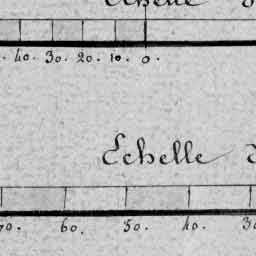 Echelle d
40. 30. 20. 10. 0.
Echelle d
70. 60. 50. 40. 30